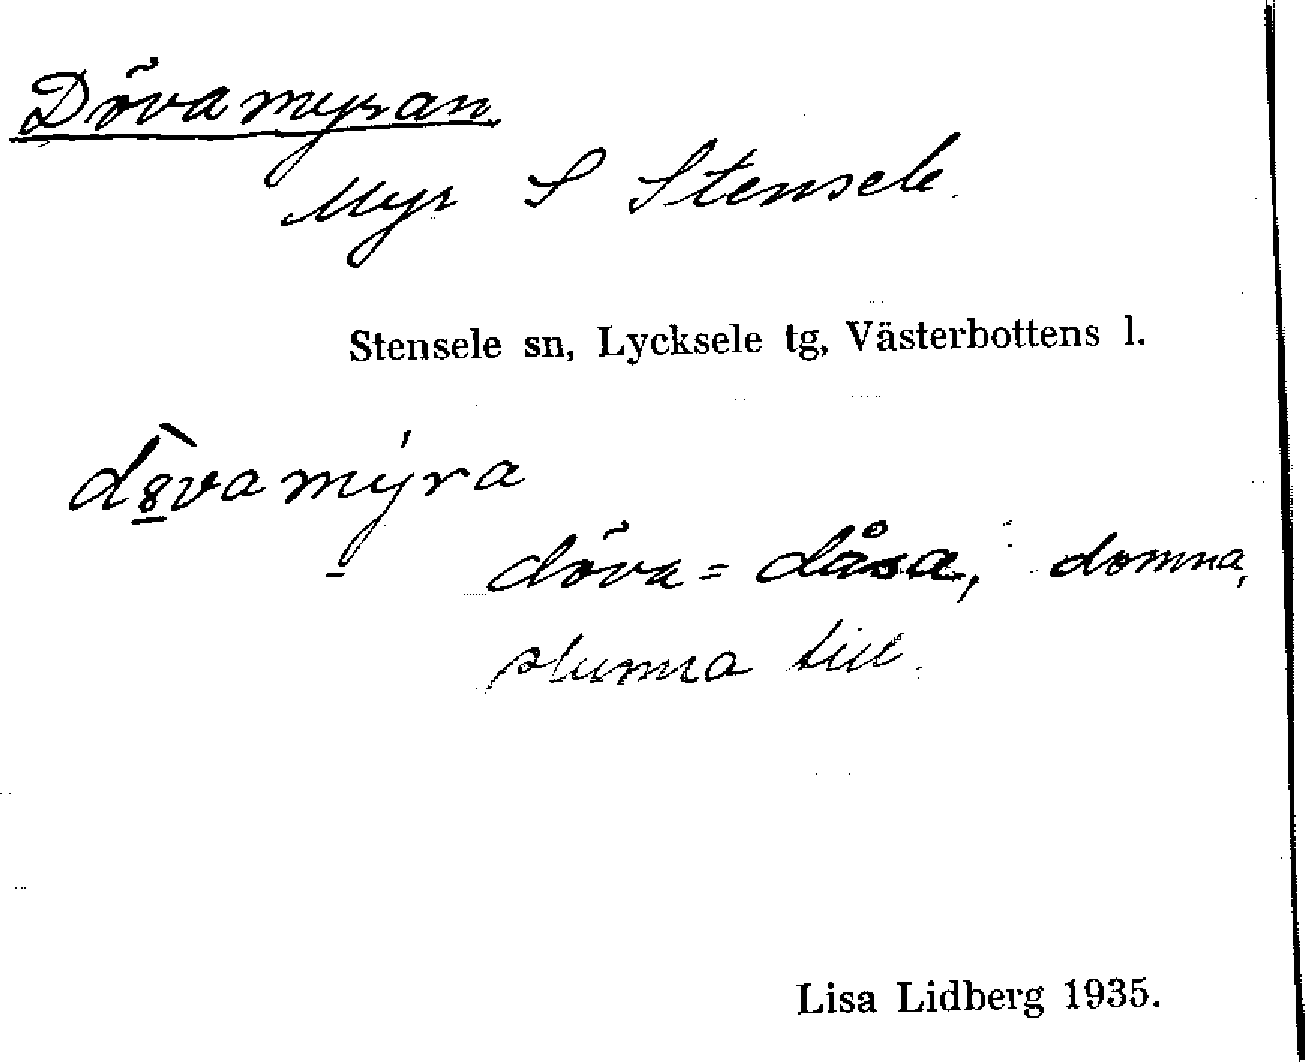 Dövamyran
Myr S Stensele.
Stensele sn, Lycksele tg, Västerbottens l.
dòvamýra
döva = dåsa, domna,
slumra till.
Lisa Lidberg 1935.